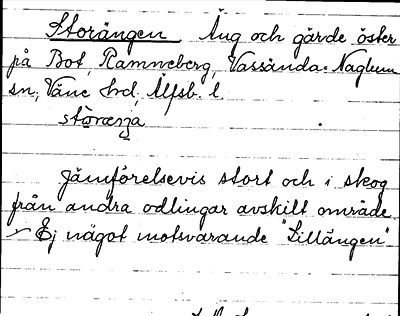 Storängen Äng och gärde öster
på Bot, Ramneberg, Vassända-Naglum
sn, Väne hd, Älfsb. l.
stòrænja
Jämförelsevis stort och i skog
från andra odlingar avskilt område
- Ej något motsvarande "Lillängen"